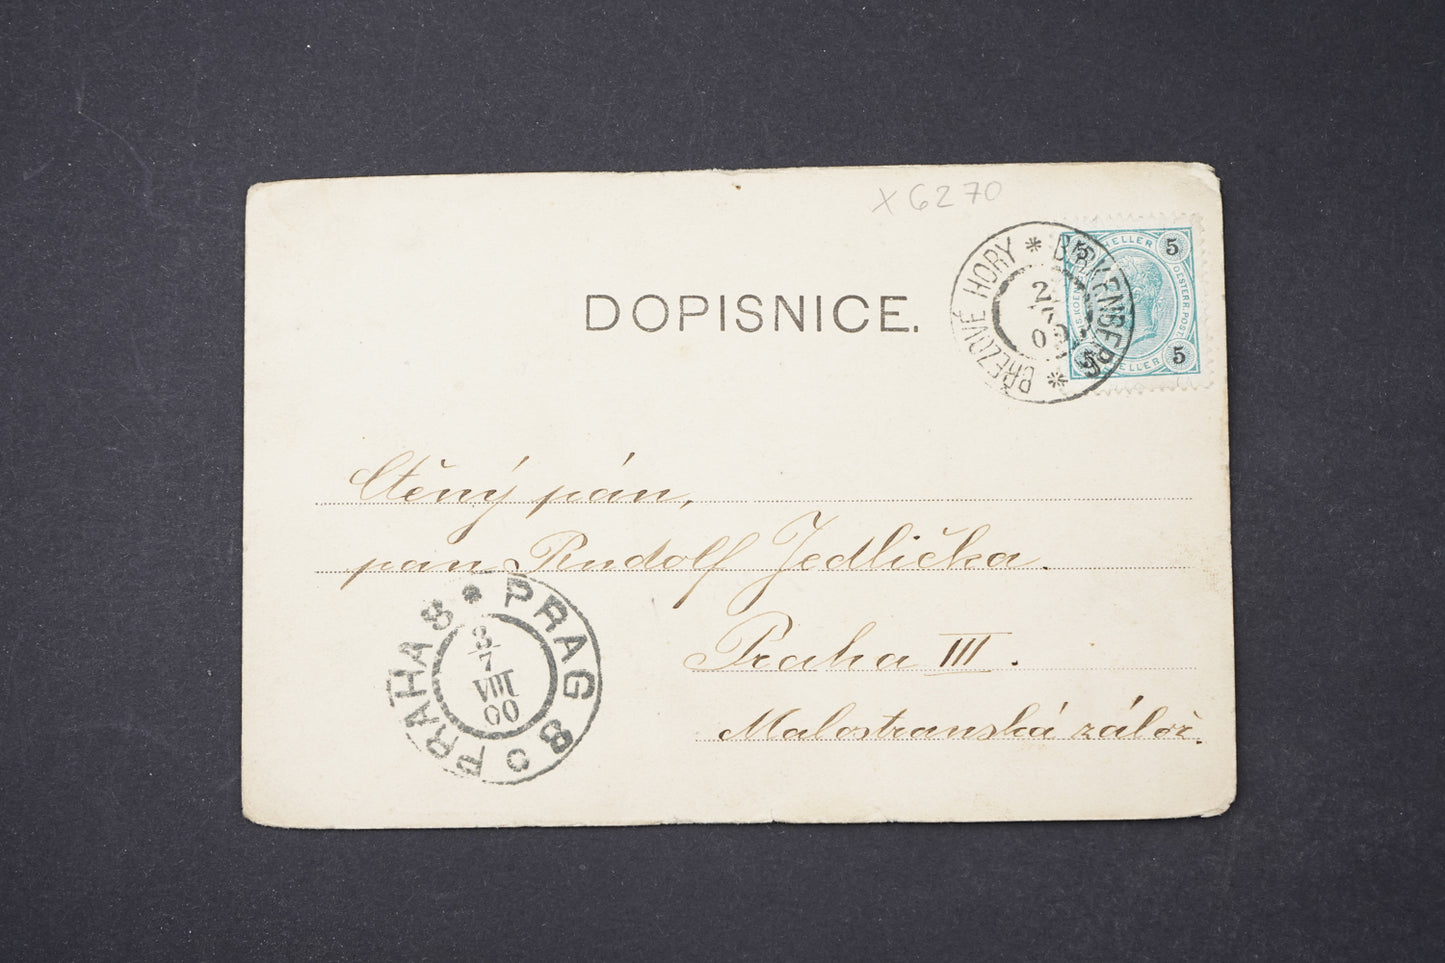 X 6270
DOPISNICE.
BŘEZOVÉ HORY * BIRKENBERG *
5 HELLER 5
OESTERR. POST.
5 HELLER 5
Ctěný pán,
pan Rudolf Jedlička.
Praha III.
Malostranská zálož.
PRAHA 8 * PRAG 8
3/7
VIII
00